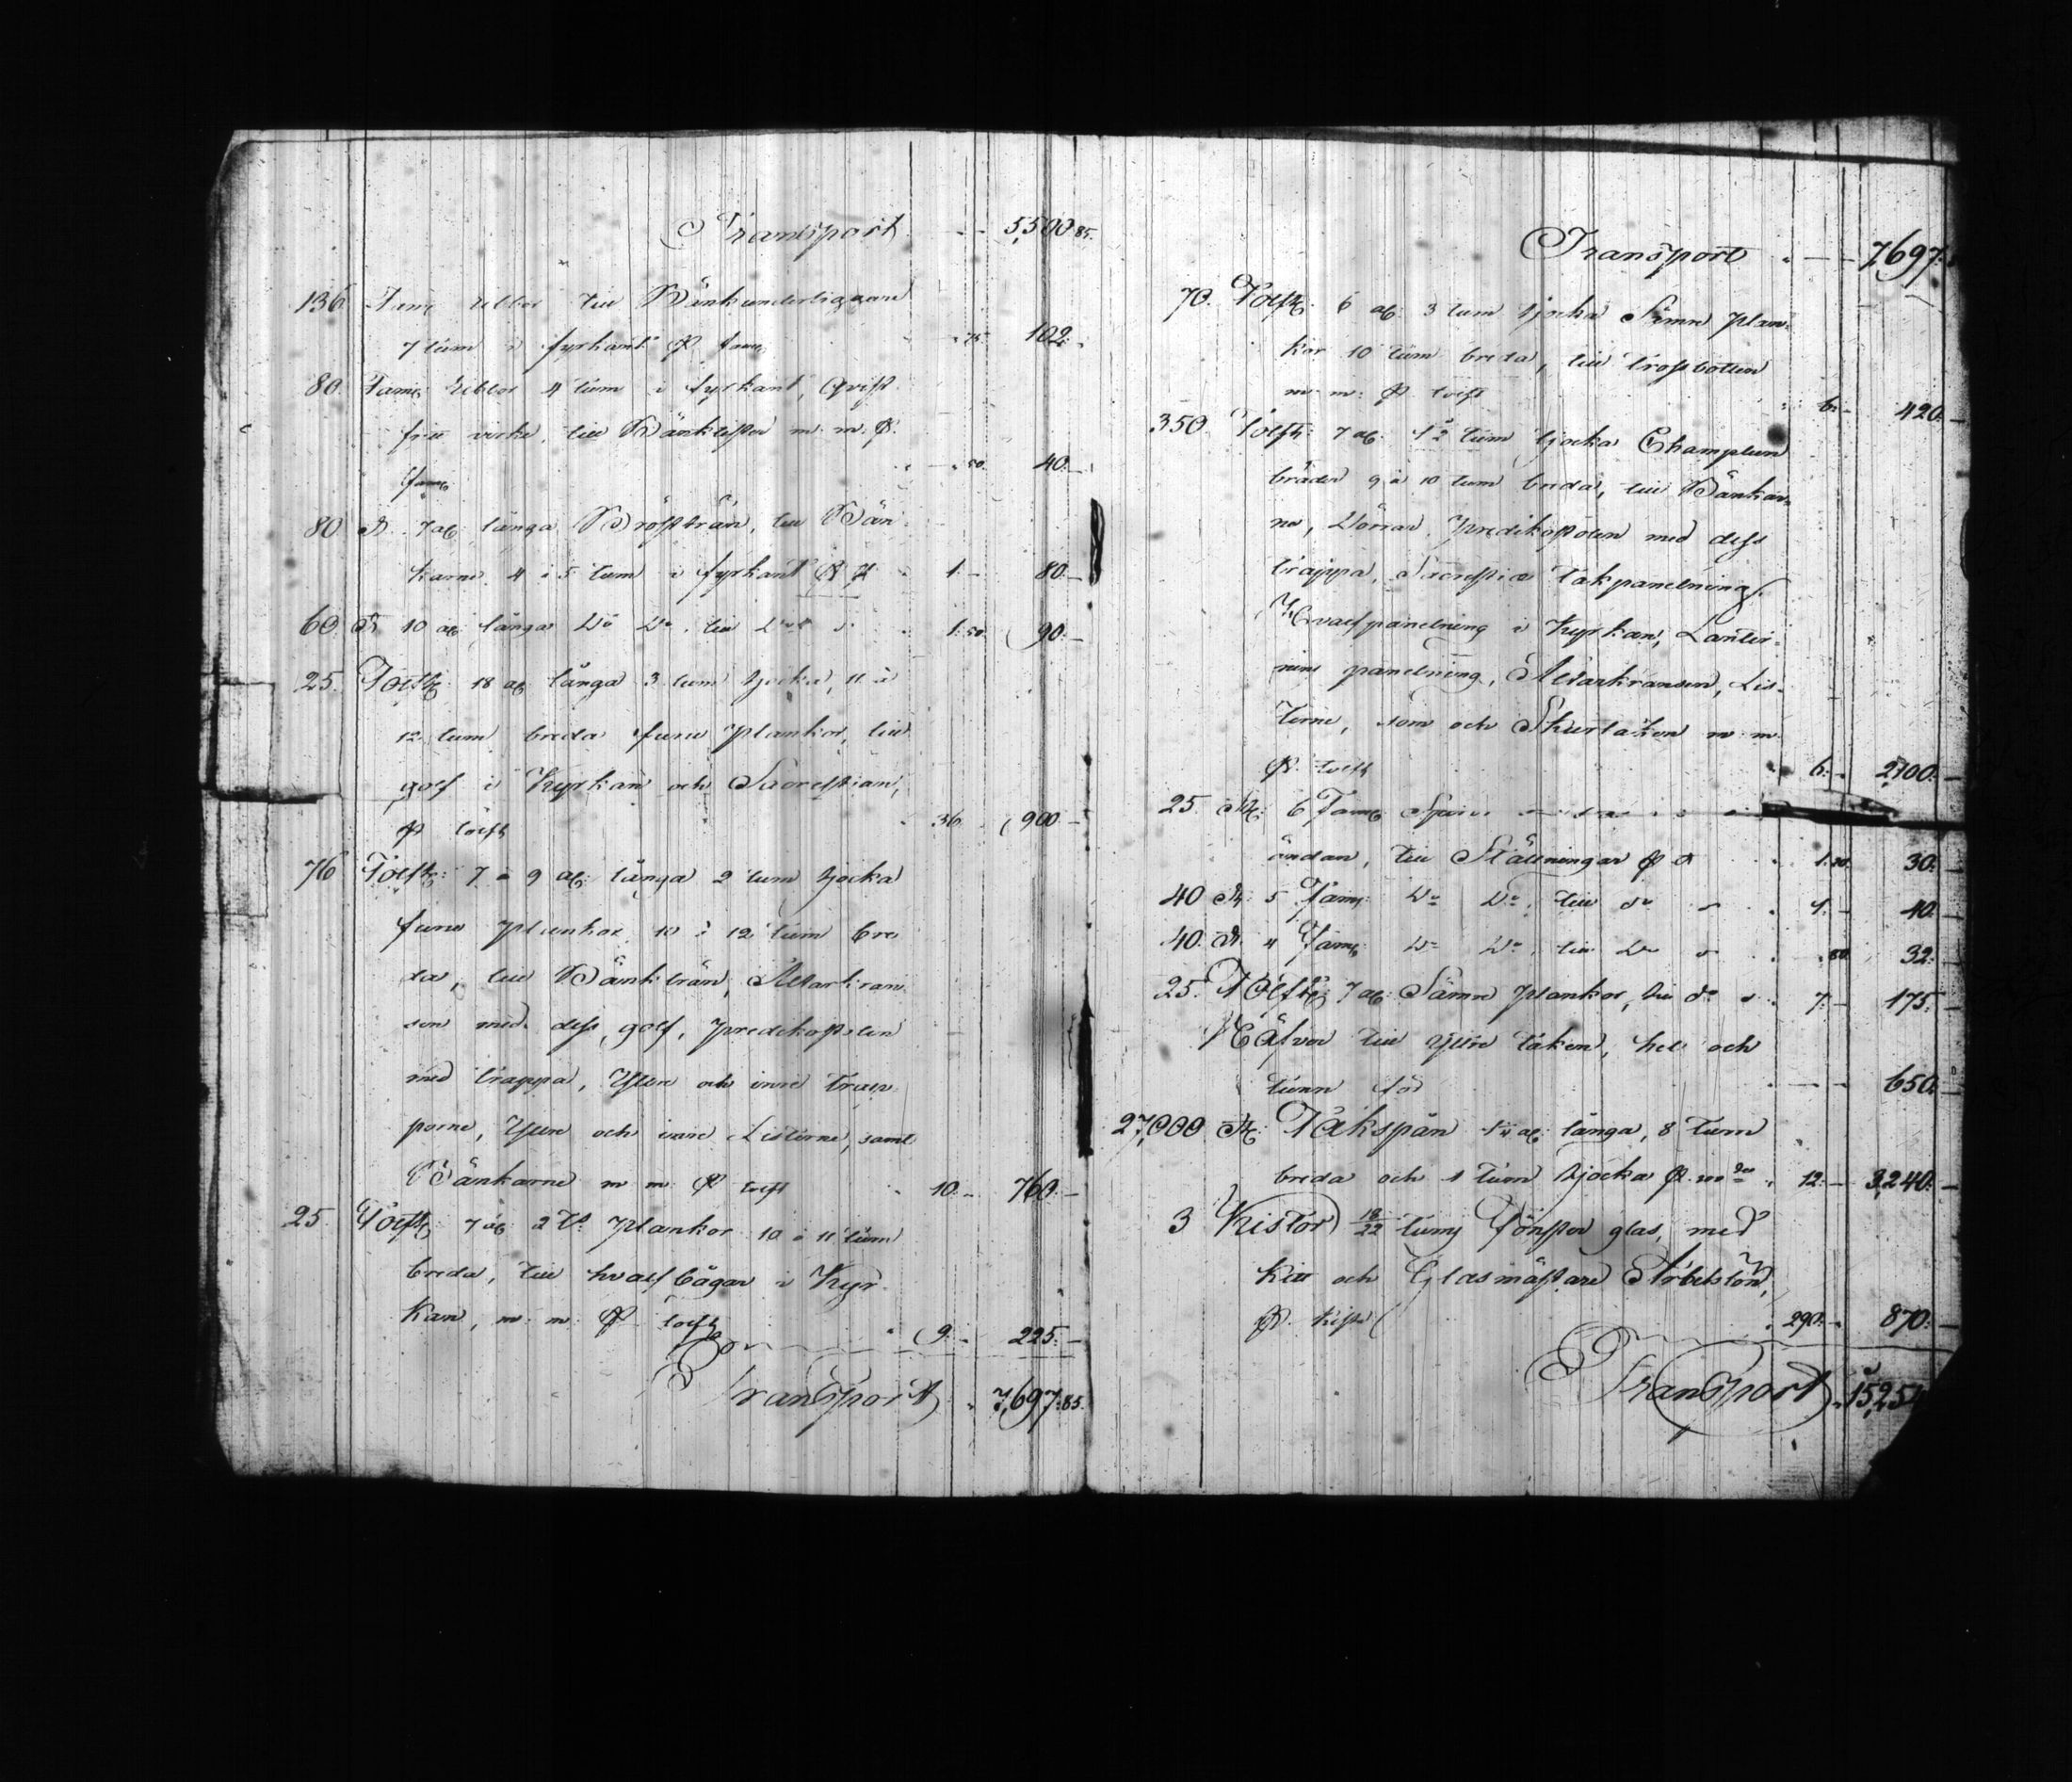 Transport - - 5,500:85.
136 Famn Ribbor till Bänkunderliggare
7 tum i fyrkant pr famn " 75 102: "
80. Famn Ribbor 4 tum i fyrkant, qvist
fritt virke, till Bänklister m. m. pr
famn " - " 50. 40: -
80 St 7 al: långa Bröstträn, till Bän
karne 4 à 5 tum i fyrkant pr st " 1: - 80: -
60. St 10 al: långa Do Do, till Do " 1: 50. 90: -
25. Tolft: 18 al: långa 3 tum tjocka, 11 à
12 tum breda furu plankor, till
golf i Kyrkan och Sacrestian,
pr tolft " 36 " 900: -
76 Tolft: 7 à 9 al: långa 2 tum tjocka
furu plankor 10 à 12 tum bre
da, till Bänkträn, Altarkran
sen med dess golf, predikostolen
med trappa, Yttre och inre trap
porne, Yttre och inre Listerne, samt
Bänkarne m m pr tolft " 10: - 760: -
25. Tolft: 7 al: 2 ts plankor 10 à 11 tum
breda, till hvalfbågar i Kyr
kan, m: m: pr tolft " 9: - 225: -
Transport " 7,697:85.
Transport " - - 7,697:
70. Tolft: 6 al: 3 tum tjocka Sämre plan-
kor 10 tum breda, till trossbotten
m: m: pr tolft " 6: - 420: -
350. Tolft: 7 al: 1½ tum tjocka
bräder 9 à 10 tum breda, till Bänkar-
ne, Dörrar, Predikostolen med dess
trappa, Sacrestiæ takpanelning,
Hvalfpanelning i Kyrkan, Lanter-
nins panelning, Altarkransen, Lis-
terne, som och Skurtaken m: m:
pr tolft " 6: - 2,100: -
25 St: 6 Famn
ändan, till Ställningar pr st " 1:20. 30: -
40 St: 5 Famn Do Do, till do " 1: - 40: -
40. St: 4 Famn Do Do, till Do " " 80 32: -
25. Tolft: 7 al: Sämre plankor, till do " 7: - 175: -
Näfver till yttre taken, hel och
tunn för " - - 650: -
27,000 St: Takspån 1¼ al: långa, 8 tum
breda och 1 tum tjocka pr 100de " 12: - 3,240: -
3 Kistor 18/22 tums Fönster glas, med
Kitt och Glasmästare Arbetslön,
pr kista " 290: - 870: -
Transport " 15,25